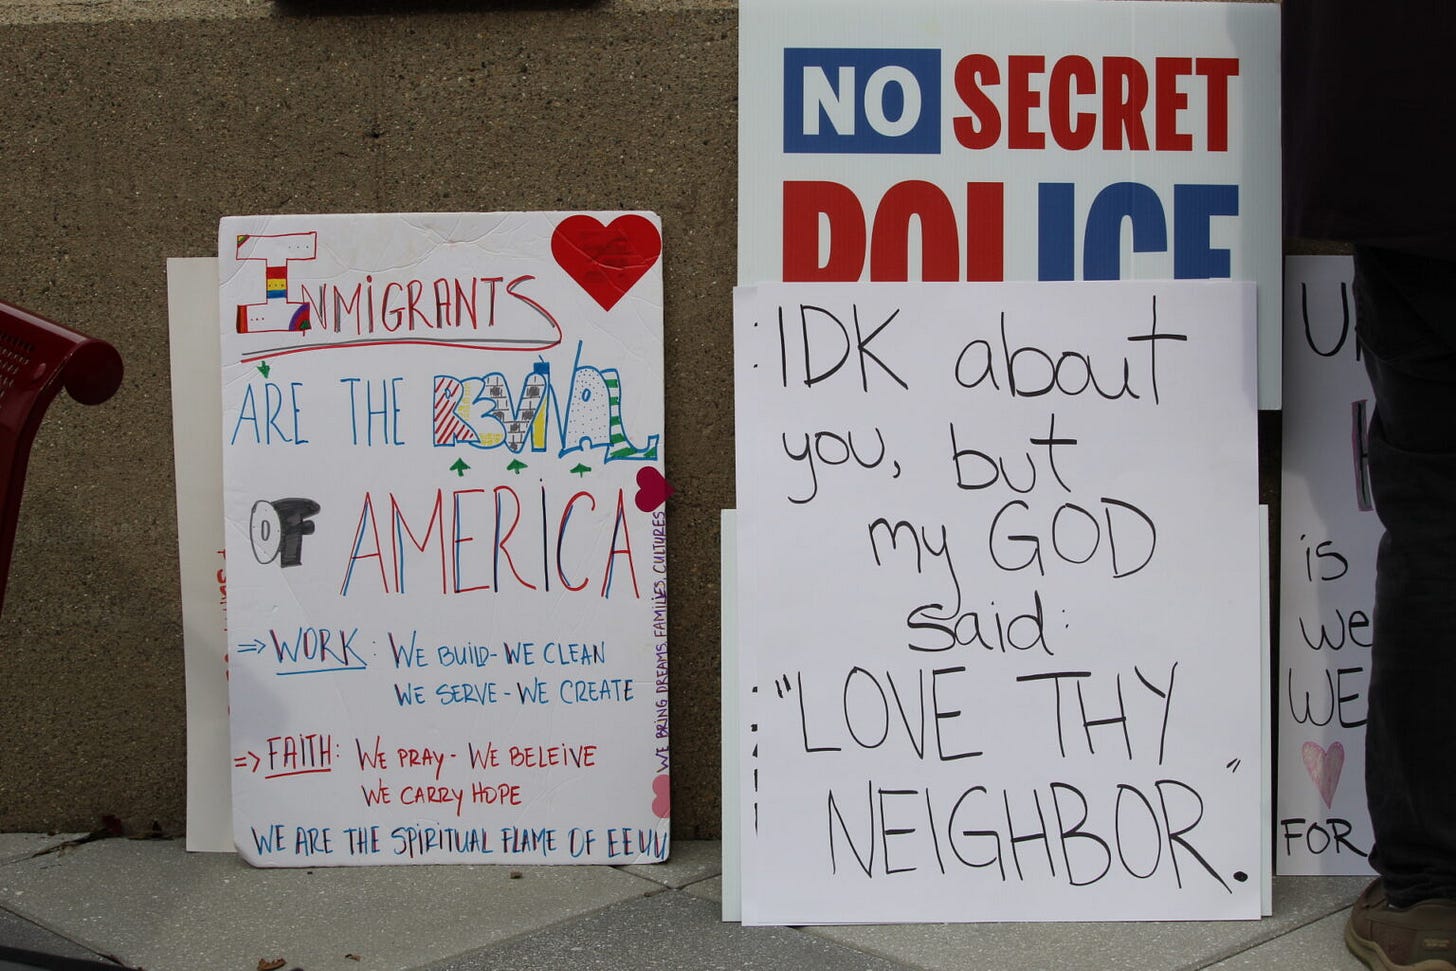 INMIGRANTS
ARE THE REVIVAL
OF AMERICA
=> WORK: WE BUILD - WE CLEAN
WE SERVE - WE CREATE
=> FAITH: WE PRAY - WE BELEIVE
WE CARRY HOPE
WE ARE THE SPIRITUAL FLAME OF EEUU
WE BRING DREAMS, FAMILIES, CULTURES
NO SECRET
POLICE
IDK about
you, but
my GOD
said:
"LOVE THY
NEIGHBOR."
is
we
WE
FOR